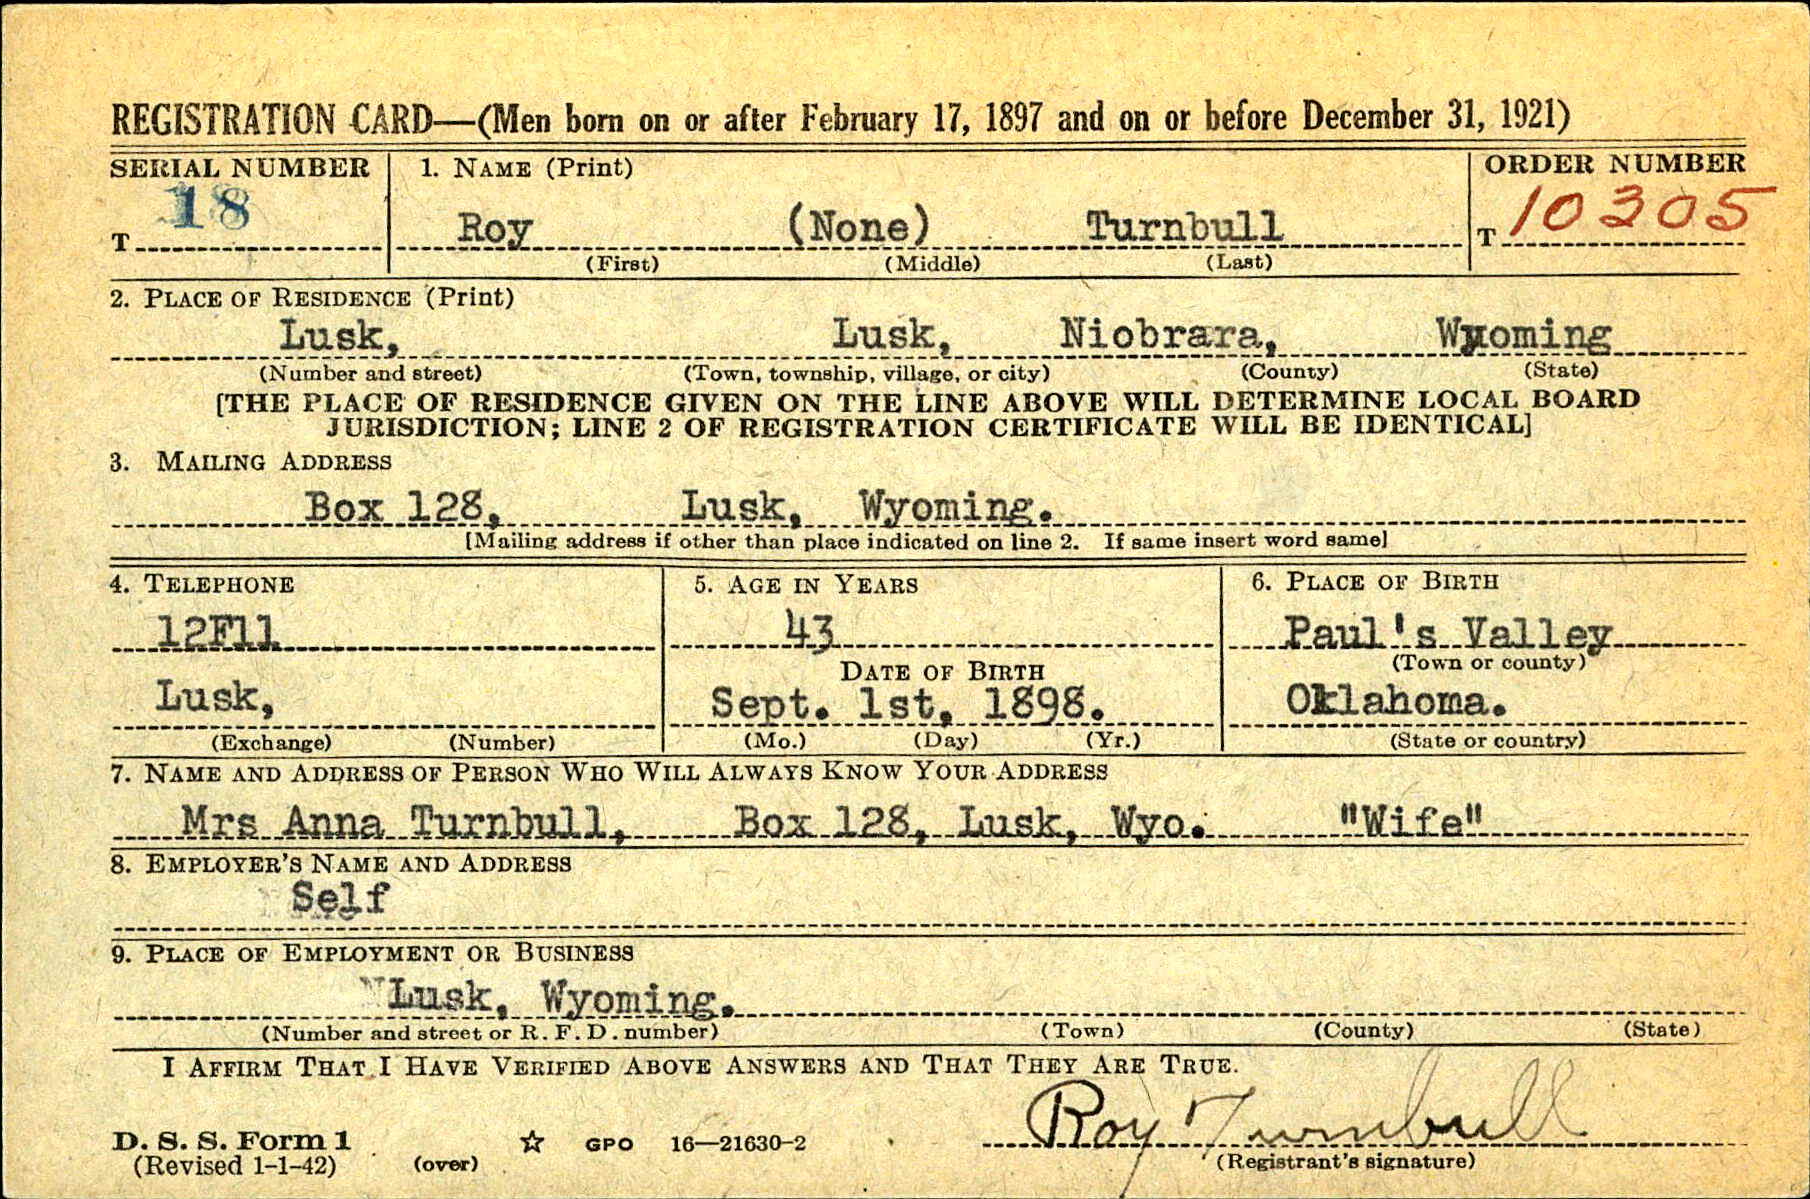 REGISTRATION CARD—(Men born on or after February 17, 1897 and on or before December 31, 1921)
SERIAL NUMBER 1. NAME (Print) ORDER NUMBER
T 18 Roy (None) Turnbull T 10305
(First) (Middle) (Last)
2. PLACE OF RESIDENCE (Print)
Lusk, Lusk, Niobrara, Wyoming
(Number and street) (Town, township, village, or city) (County) (State)
[THE PLACE OF RESIDENCE GIVEN ON THE LINE ABOVE WILL DETERMINE LOCAL BOARD
JURISDICTION; LINE 2 OF REGISTRATION CERTIFICATE WILL BE IDENTICAL]
3. MAILING ADDRESS
Box 128, Lusk, Wyoming.
[Mailing address if other than place indicated on line 2. If same insert word same]
4. TELEPHONE 5. AGE IN YEARS 6. PLACE OF BIRTH
12F11 43 Paul's Valley
DATE OF BIRTH (Town or county)
Lusk, Sept. 1st, 1898. Oklahoma.
(Exchange) (Number) (Mo.) (Day) (Yr.) (State or country)
7. NAME AND ADDRESS OF PERSON WHO WILL ALWAYS KNOW YOUR ADDRESS
Mrs Anna Turnbull, Box 128, Lusk, Wyo. "Wife"
8. EMPLOYER'S NAME AND ADDRESS
Self
9. PLACE OF EMPLOYMENT OR BUSINESS
Lusk, Wyoming.
(Number and street or R. F. D. number) (Town) (County) (State)
I AFFIRM THAT I HAVE VERIFIED ABOVE ANSWERS AND THAT THEY ARE TRUE.
Roy Turnbull
D. S. S. Form 1 GPO 16—21630-2
(Revised 1-1-42) (over) (Registrant's signature)